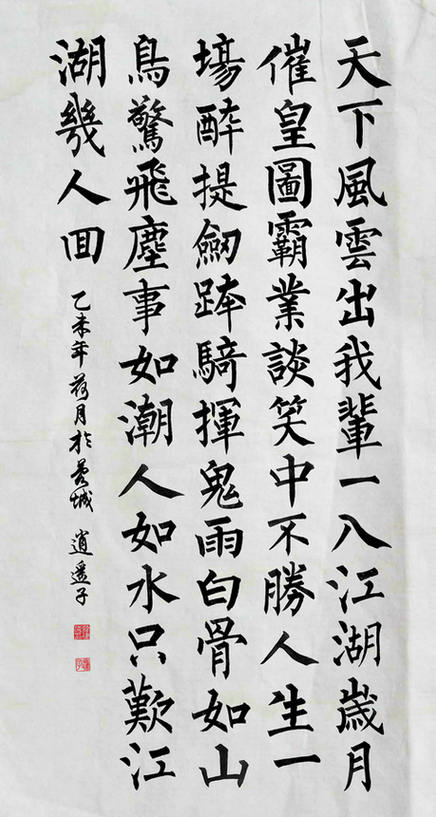 天下風雲出我輩一入江湖歲月
催皇圖霸業談笑中不勝人生一
塲醉提劔跨騎揮鬼雨白骨如山
鳥驚飛塵事如潮人如水只歎江
湖幾人囬
乙未年荷月於蓉城 逍遥子